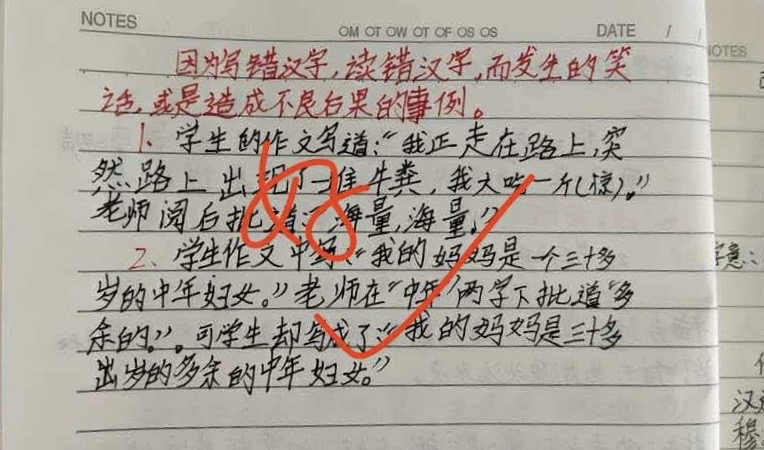 NOTES
OM OT OW OT OF OS OS
DATE / /
因为写错汉字,读错汉字,而发生的笑
话,或是造成不良后果的事例。
1、学生的作文写道:“我正走在路上,突
然路上出现了一堆牛粪,我大吃一斤(惊)。”
老师阅后批道:“海量,海量。”
2、学生作文中写“我的妈妈是一个三十多
岁的中年妇女。”老师在“中年”两字下批道“多
余的。”。可学生却写成了“我的妈妈是三十多
出岁的多余的中年妇女。”
好
NOTES
字意:
汉
穆